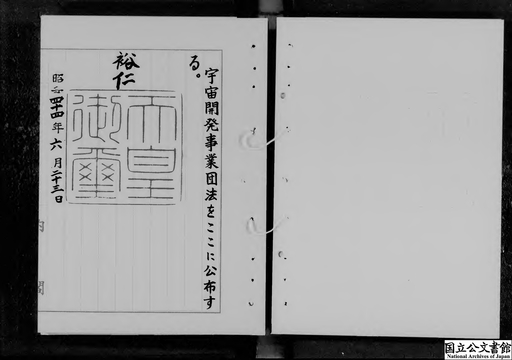 宇宙開発事業団法をここに公布す
る。
裕仁
天皇
御璽
昭和四十四年六月二十三日
内閣
国立公文書館
National Archives of Japan